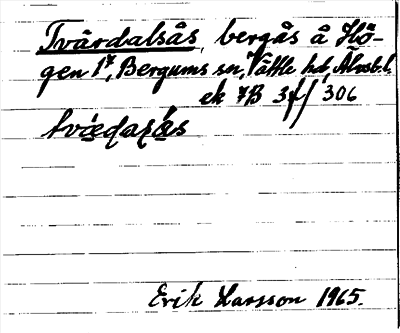 Tvärdalsås, bergås å Hö-
gen 1⁷, Bergums sn, Vättle hd, Älvsb. l.
ek 7B 3f/ 306
Erik Larsson 1965.